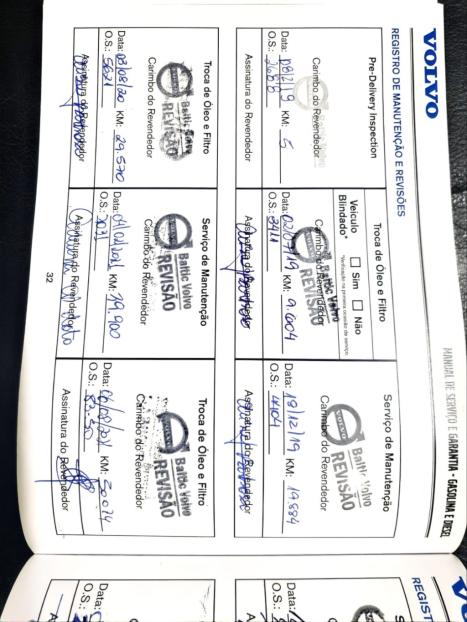 MANUAL DE SERVIÇO E GARANTIA - GASOLINA E DIESEL
VOLVO
REGISTRO DE MANUTENÇÃO E REVISÕES
Pre-Delivery Inspection
Carimbo do Revendedor
Data: 08/2/19 KM: 5
O.S.: 2688
Assinatura do Revendedor
Troca de Óleo e Filtro
Veículo Blindado* Sim Não
*Verificação na primeira ocasião de serviço
Baltic Volvo
REVISÃO
Carimbo do Revendedor
Data: 02/07/19 KM: 9.604
O.S.: 3411
Assinatura do Revendedor
Serviço de Manutenção
Baltic Volvo
REVISÃO
Carimbo do Revendedor
Data: 18/12/19 KM: 19.884
O.S.: 4404
Assinatura do Revendedor
Troca de Óleo e Filtro
Baltic Volvo
REVISÃO
Carimbo do Revendedor
Data: 03/08/20 KM: 29.570
O.S.: 5621
Assinatura do Revendedor
Serviço de Manutenção
Baltic Volvo
REVISÃO
Carimbo do Revendedor
Data: KM:
O.S.:
Assinatura do Revendedor
Troca de Óleo e Filtro
Baltic Volvo
REVISÃO
Carimbo do Revendedor
Data: KM:
O.S.:
Assinatura do Revendedor
32
REGIST
Data:
O.S.:
Data:
O.S.: